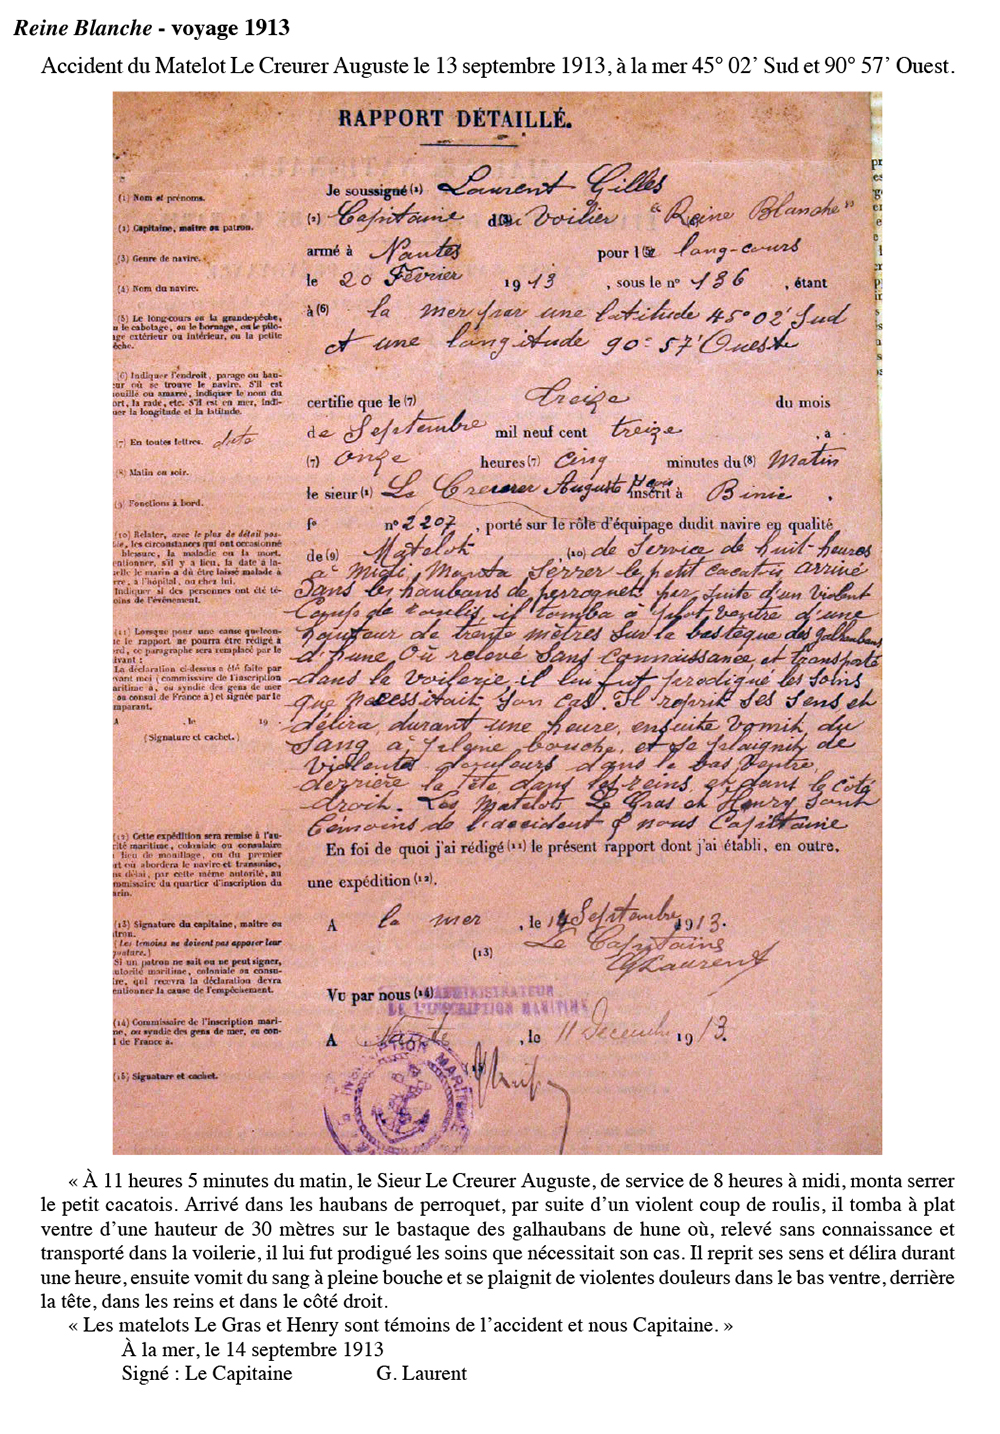 Reine Blanche - voyage 1913
Accident du Matelot Le Creurer Auguste le 13 septembre 1913, à la mer 45° 02’ Sud et 90° 57’ Ouest.
RAPPORT DÉTAILLÉ.
Je soussigné (1) Laurent Gilles
(2) Capitaine du Voilier "Reine Blanche"
armé à Nantes pour le long-cours
le 20 Février 1913, sous le n° 136, étant
à (6) la mer par une latitude 45° 02' Sud
et une longitude 90° 57' Ouest
certifie que le (7) treize du mois
de Septembre mil neuf cent treize, à
(7) onze heures (7) cinq minutes du (8) Matin
le sieur (1) Le Creurer Auguste inscrit à Binic,
f° n° 2207, porté sur le rôle d'équipage dudit navire en qualité
de (9) Matelot, (10) de service de huit heures
à Midi, Monta serrer le petit cacatois arrivé
dans les haubans de perroquet, par suite d'un violent
Coup de roulis, il tomba à plat ventre d'une
hauteur de trente mètres sur le bastèque des galhaubans
d'hune où relevé sans connaissance et transporté
dans la voilerie il lui fut prodigué les soins
que nécessitait son cas. Il reprit ses sens et
délira durant une heure, ensuite vomit du
sang à pleine bouche, et se plaignit de
violentes douleurs dans le bas ventre,
derrière la tête, dans les reins et dans le côté
droit. Les Matelots Le Gras et Henry sont
témoins de l'accident & nous Capitaine
En foi de quoi j'ai rédigé (11) le présent rapport dont j'ai établi, en outre,
une expédition (12).
A la mer, le 14 Septembre 1913.
(13) Le Capitaine
G Laurent
Vu par nous (14)
L'ADMINISTRATEUR
DE L'INSCRIPTION MARITIME
A Nantes, le 11 Décembre 1913.
INSCRIPTION MARITIME
(1) Nom et prénoms.
(2) Capitaine, maître ou patron.
(3) Genre de navire.
(4) Nom du navire.
(5) Le long-cours ou la grande-pêche,
le cabotage, ou le bornage, ou le pilo-
ge extérieur ou intérieur, ou la petite
êche.
(6) Indiquer l'endroit, parage ou hau-
ur où se trouve le navire. S'il est
ouillé ou amarré, indiquer le nom du
ort, la rade, etc. S'il est en mer, indi-
uer la longitude et la latitude.
(7) En toutes lettres. date
(8) Matin ou soir.
(9) Fonctions à bord.
(10) Relater, avec le plus de détail pos-
ble, les circonstances qui ont occasionné
blessure, la maladie ou la mort.
entionner, s'il y a lieu, la date à la-
elle le marin a dû être laissé malade à
rre, à l'hôpital, ou chez lui.
Indiquer si des personnes ont été té-
oins de l'événement.
(11) Lorsque pour une cause quelcon-
e le rapport ne pourra être rédigé à
rd, ce paragraphe sera remplacé par le
ivant :
La déclaration ci-dessus a été faite par
vant moi (commissaire de l'inscription
aritime à, ou syndic des gens de mer
ou consul de France à) et signée par le
mparant.
A , le 19 .
(Signature et cachet.)
(12) Cette expédition sera remise à l'au-
rité maritime, coloniale ou consulaire
lieu de mouillage, ou du premier
rt où abordera le navire et transmise,
ns délai, par cette même autorité, au
mmissaire du quartier d'inscription du
arin.
(13) Signature du capitaine, maître ou
tron.
(Les témoins ne doivent pas apposer leur
gnature.)
Si un patron ne sait ou ne peut signer,
utorité maritime, coloniale ou consu-
ire, qui recevra la déclaration devra
entionner la cause de l'empêchement.
(14) Commissaire de l'inscription mari-
me, ou syndic des gens de mer, ou con-
l de France à.
(15) Signature et cachet.
« À 11 heures 5 minutes du matin, le Sieur Le Creurer Auguste, de service de 8 heures à midi, monta serrer
le petit cacatois. Arrivé dans les haubans de perroquet, par suite d’un violent coup de roulis, il tomba à plat
ventre d’une hauteur de 30 mètres sur le bastaque des galhaubans de hune où, relevé sans connaissance et
transporté dans la voilerie, il lui fut prodigué les soins que nécessitait son cas. Il reprit ses sens et délira durant
une heure, ensuite vomit du sang à pleine bouche et se plaignit de violentes douleurs dans le bas ventre, derrière
la tête, dans les reins et dans le côté droit.
« Les matelots Le Gras et Henry sont témoins de l’accident et nous Capitaine. »
À la mer, le 14 septembre 1913
Signé : Le Capitaine G. Laurent